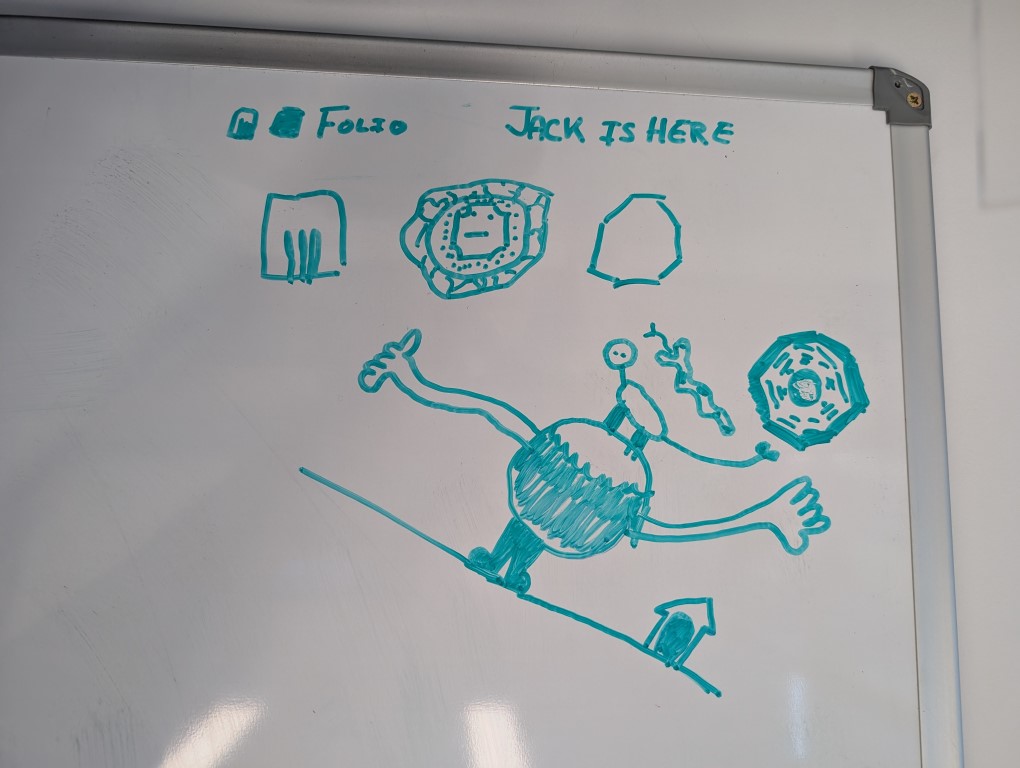 FOLIO JACK IS HERE